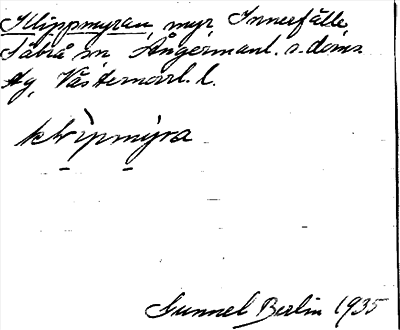 Klippmyran, myr, Innerfälle,
Säbrå sn Ångermanl. s. doms
sg, Västernorrl. l.
klìpmỳra
Gunnel Berlin 1935